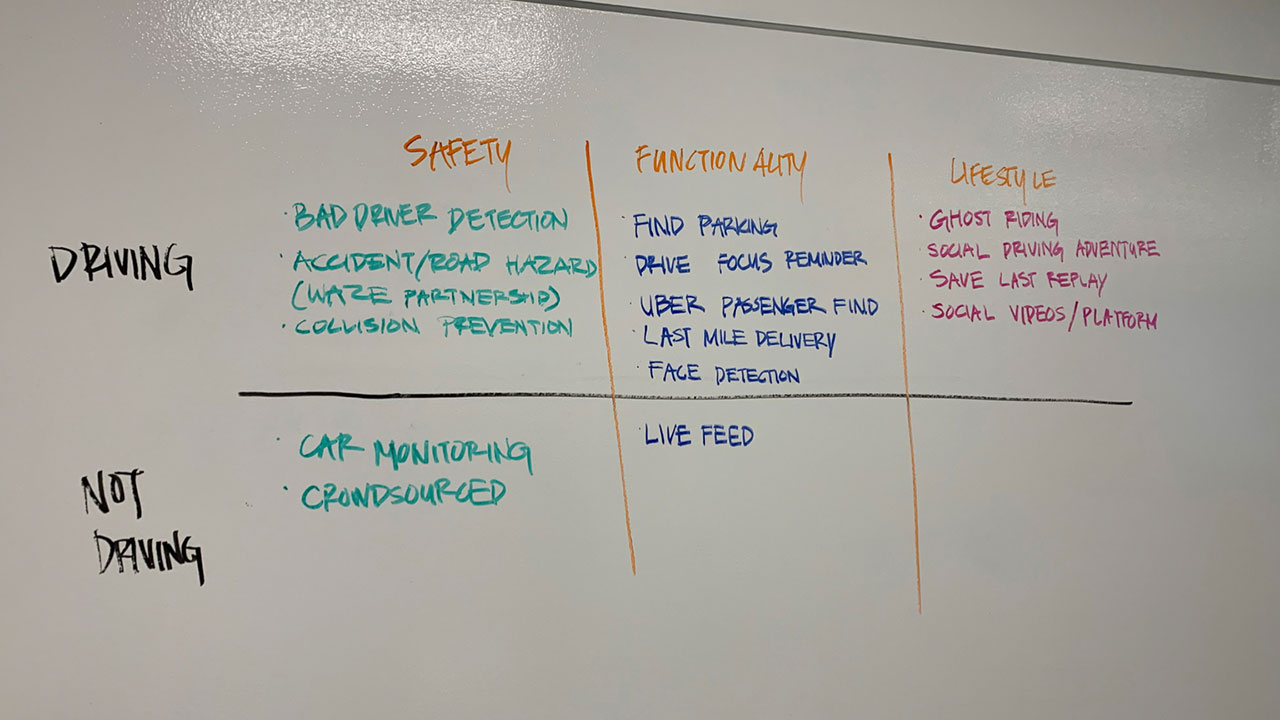 SAFETY
FUNCTIONALITY
LIFESTYLE
DRIVING
· BAD DRIVER DETECTION
· ACCIDENT/ROAD HAZARD
(WAZE PARTNERSHIP)
· COLLISION PREVENTION
· FIND PARKING
· DRIVE FOCUS REMINDER
· UBER PASSENGER FIND
· LAST MILE DELIVERY
· FACE DETECTION
· GHOST RIDING
· SOCIAL DRIVING ADVENTURE
· SAVE LAST REPLAY
· SOCIAL VIDEOS/PLATFORM
NOT
DRIVING
· CAR MONITORING
· CROWDSOURCED
· LIVE FEED